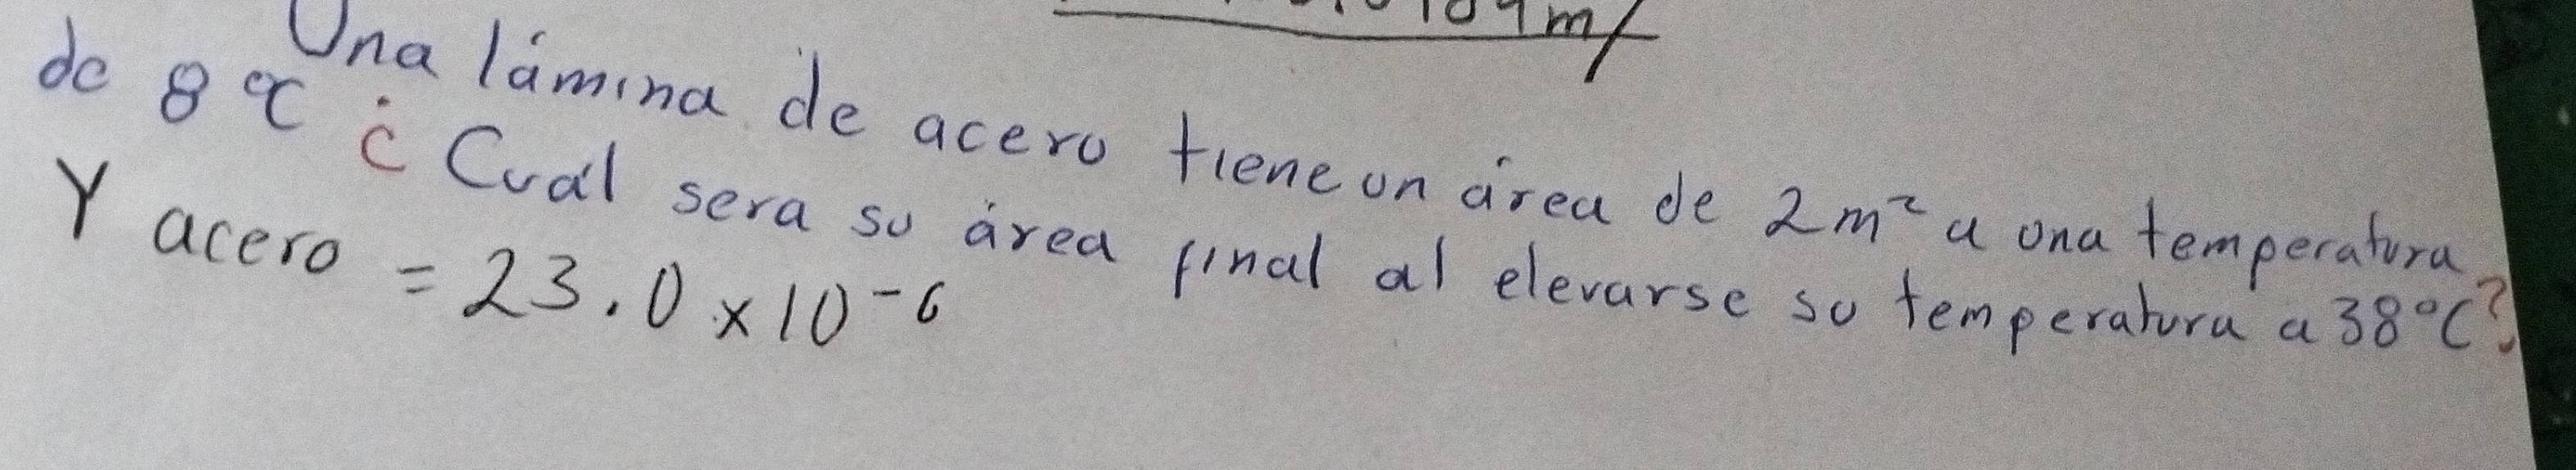 m/
Una lámina de acero tiene un área de 2m² a una temperatura
de 8°C ¿Cuál sera su área final al elevarse su temperatura a 38°C?
γ acero = 23.0 x 10-6